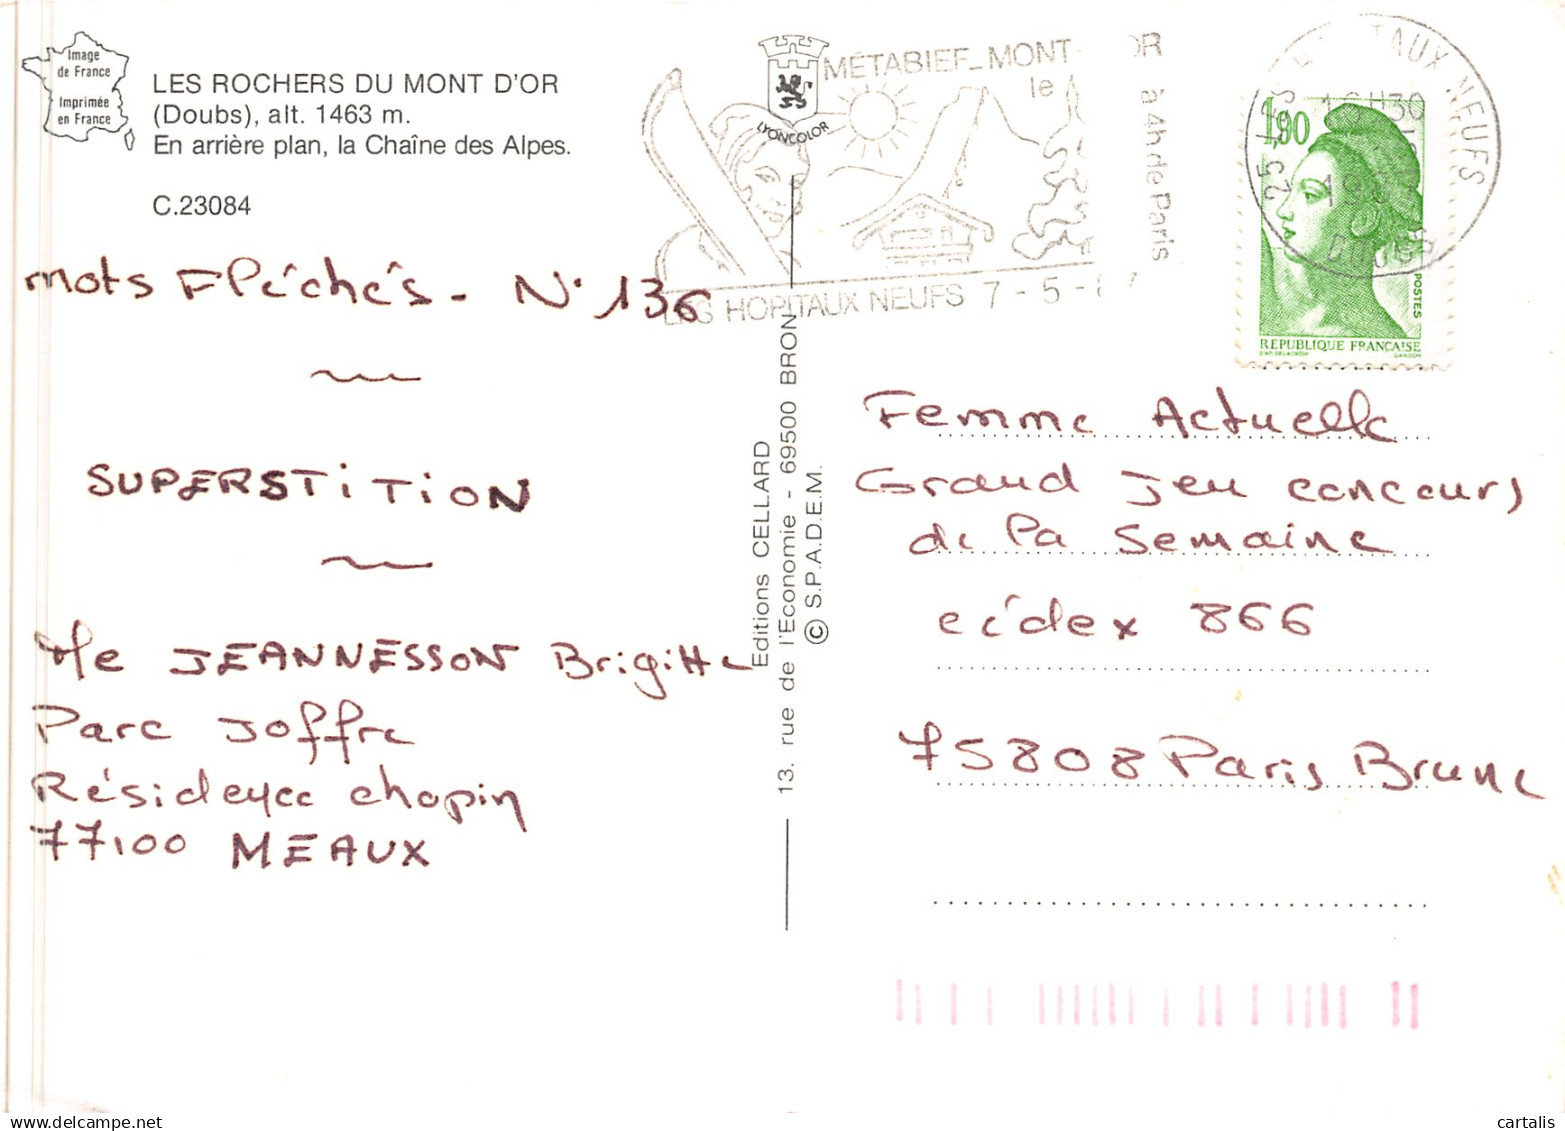 Image
de France
Imprimée
en France
LES ROCHERS DU MONT D'OR
(Doubs), alt. 1463 m.
En arrière plan, la Chaîne des Alpes.
C.23084
LYONCOLOR
MÉTABIEF_MONT OR
le
à 4h de Paris
HOPITAUX NEUFS 7-5-
25 TAUX NEUFS
16H30
DOUBS
1,90
POSTES
REPUBLIQUE FRANÇAISE
D'AP. DELACROIX GANDON
mots Fléchés - N° 136
SUPERSTITION
Me JEANNESSON Brigitte
Parc Joffre
Résidence chopin
77100 MEAUX
Editions CELLARD
13. rue de l'Economie - 69500 BRON
© S.P.A.D.E.M.
Femme Actuelle
Grand Jeu concours
de la semaine
cédex 866
75808 Paris Brune
cartalis